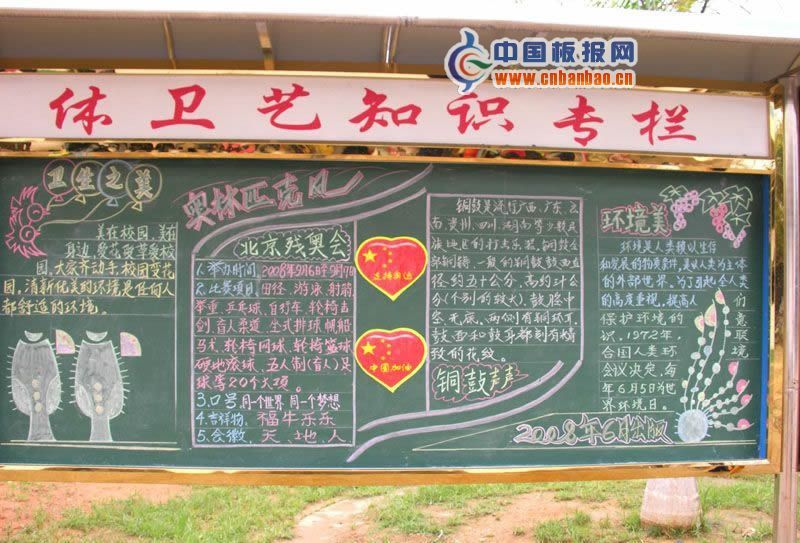 中国板报网
www.cnbanbao.cn
体卫艺知识专栏
卫生之美
美在校园,美在
身边,爱花爱草爱校
园,大家齐动手,校园变花
园,清新优美的环境是任何人
都舒适的环境。
奥林匹克风
北京残奥会
1.举办时间:2008年9月6日至9月17日
2.比赛项目:田径、游泳、射箭、
举重、乒乓球、自行车、轮椅击
剑、盲人柔道、坐式排球、帆船
马术、轮椅网球、轮椅篮球
硬地滚球、五人制(盲人)足
球等20个大项。
3.口号:同一个世界 同一个梦想
4.吉祥物:福牛乐乐
5.会徽:天、地、人
连接奥运
中国加油
铜鼓是流行广西、广东、云
南、贵州、四川、湖南等少数民
族地区的打击乐器,铜鼓全
部铜铸,一般的铜鼓鼓面直
径约五十公分,高约卅公分
(个别的较大),鼓腔中
空,无底,两侧有铜环耳,
鼓面和鼓身都刻有精
致的花纹。
铜鼓声声
环境美
环境是人类赖以生存
和发展的物质条件,是以人类为主体
的外部世界,为了引起全人类
的高度重视,提高人们
保护环境的意
识,1972年,联
合国人类环境
会议决定,每
年6月5日为世
界环境日。
2008年6月出版